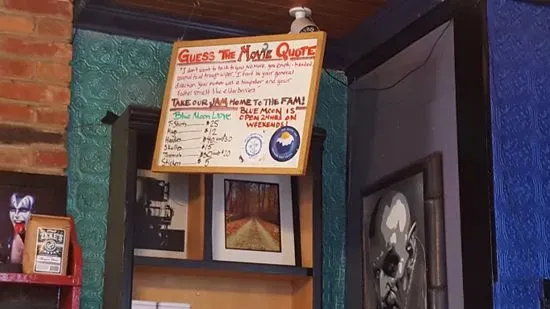 GUESS THE MOVIE QUOTE
"I don't want to talk to you no more, you empty-headed
animal food trough wiper, I fart in your general
direction. Your mother was a hamster and your
father smelt like elderberries
TAKE OUR JAM HOME TO THE FAM!
Blue Moon Love
T-Shirts $25
Mug $12
$15
Stickers
BLUE MOON IS
OPEN 24HRS ON
WEEKENDS!